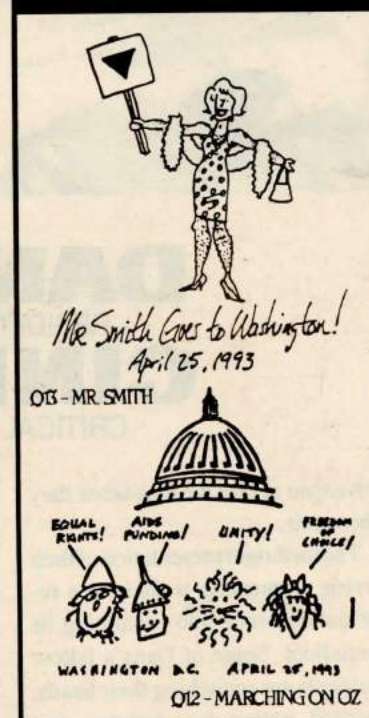 Mr. Smith Goes to Washington!
April 25, 1993
Q13 - MR. SMITH
EQUAL RIGHTS!
AIDS FUNDING!
UNITY!
FREEDOM OF CHOICE!
WASHINGTON D.C. APRIL 25, 1993
Q12 - MARCHING ON OZ